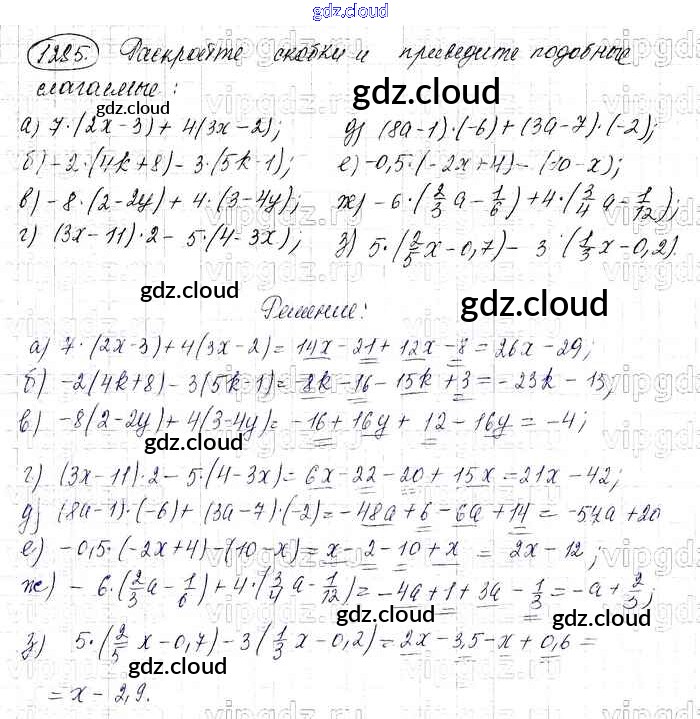 gdz.cloud
1285. Раскройте скобки и приведите подобные
слагаемые:
gdz.cloud
а) 7·(2x-3)+4(3x-2); д) (8a-1)·(-6)+(3a-7)·(-2);
gdz.cloud
б) -2·(4k+8)-3·(5k-1); е) -0,5·(-2x+4)-(10-x);
в) -8·(2-2y)+4·(3-4y); ж) -6·(2/3 a-1/6)+4·(3/4 a-1/12);
г) (3x-11)·2-5·(4-3x); з) 5·(2/5 x-0,7)-3·(1/3 x-0,2).
gdz.cloud
Решение: gdz.cloud
а) 7·(2x-3)+4(3x-2)=14x-21+12x-8=26x-29;
gdz.cloud
б) -2(4k+8)-3(5k-1)=-8k-16-15k+3=-23k-13;
в) -8(2-2y)+4(3-4y)=-16+16y+12-16y=-4;
gdz.cloud gdz.cloud
г) (3x-11)·2-5·(4-3x)=6x-22-20+15x=21x-42;
д) (8a-1)·(-6)+(3a-7)·(-2)=-48a+6-6a+14=-54a+20
gdz.cloud
е) -0,5·(-2x+4)-(10-x)=x-2-10+x=2x-12;
ж) -6·(2/3 a-1/6)+4·(3/4 a-1/12)=-4a+1+3a-1/3=-a+2/3;
gdz.cloud gdz.cloud
з) 5·(2/5 x-0,7)-3(1/3 x-0,2)=2x-3,5-x+0,6=
gdz.cloud
=x-2,9.
gdz.cloud